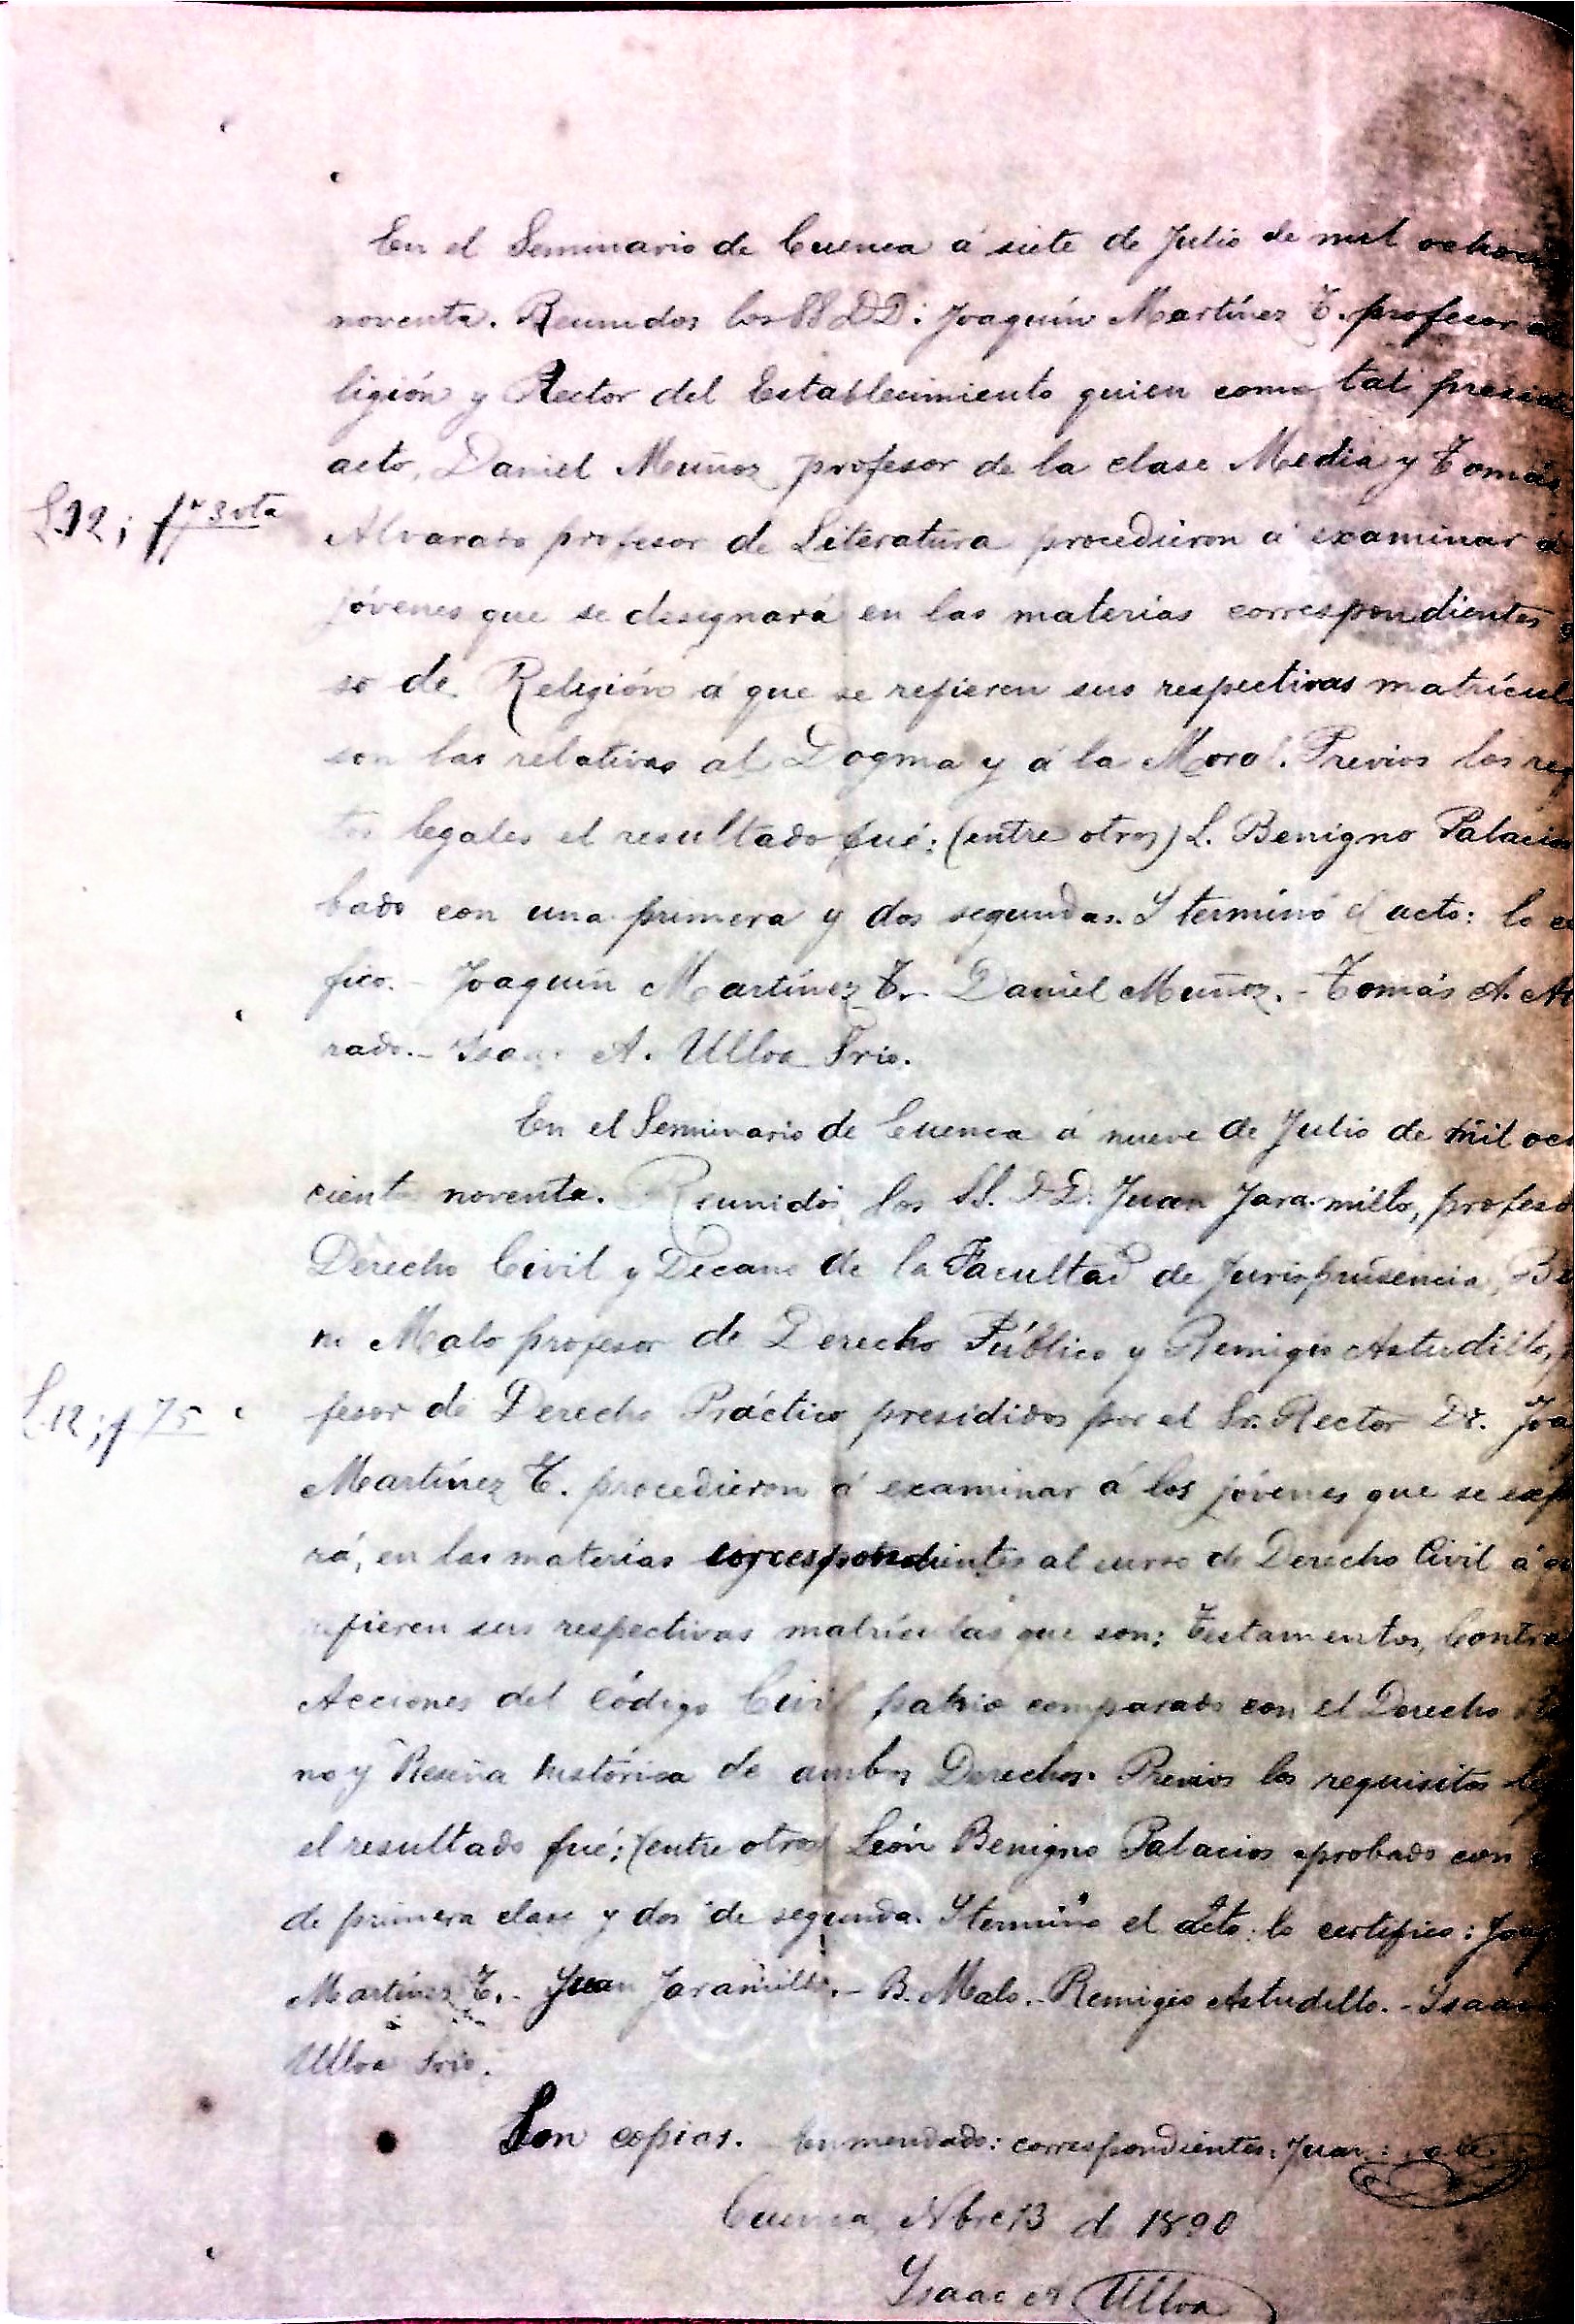 En el Seminario de Cuenca á siete de Julio de mil ochoci
noventa. Reunidos los SS DD: Joaquín Martínez T. profesor
ligión y Rector del Establecimiento quien como tal presid
acto, Daniel Muñoz profesor de la clase Media y Tomás
L. 12; f. 73 vta
Alvarado profesor de Literatura procedieron á examinar á
jóvenes que se designará en las materias correspondientes
so de Religión á que se refieren sus respectivas matrícul
son las relativas al Dogma y á la Moral. Previos los req
tos legales el resultado fué: (entre otros) L. Benigno Palacios
bado con una primera y dos segundas. Y terminó el acto: lo ce
fico.- Joaquín Martínez T.- Daniel Muñoz.- Tomás A. Al
rado.- Isaac A. Ulloa Srio.
En el Seminario de Cuenca á nueve de Julio de mil oc
ciento noventa. Reunidos los SS. DD. Juan Jaramillo, profeso
Derecho Civil y Decano de la Facultad de Jurisprudencia, Be
ni Malo profesor de Derecho Público y Remigio Astudillo,
L. 12; f 75
fesor de Derecho Práctico presididos por el Sr. Rector Dr. Joa
Martínez T. procedieron á examinar á los jóvenes que se exp
rá, en las materias correspondientes al curso de Derecho Civil á
fieren sus respectivas matrículas que son: Testamentos, Contra
Acciones del Código Civil patrio comparado con el Derecho
no y Reseña histórica de ambos Derechos. Previos los requisitos le
el resultado fué: (entre otros) León Benigno Palacios aprobado con
de primera clase y dos de segunda. Y terminó el acto: lo certifico: Joaq
Martínez T.- Juan Jaramillo.- B. Malo.- Remigio Astudillo.- Isaac
Ulloa Srio.
Son copias. Enmendado: correspondientes: Juan: vale.
Cuenca, Nbre 13 de 1890
Isaac A Ulloa